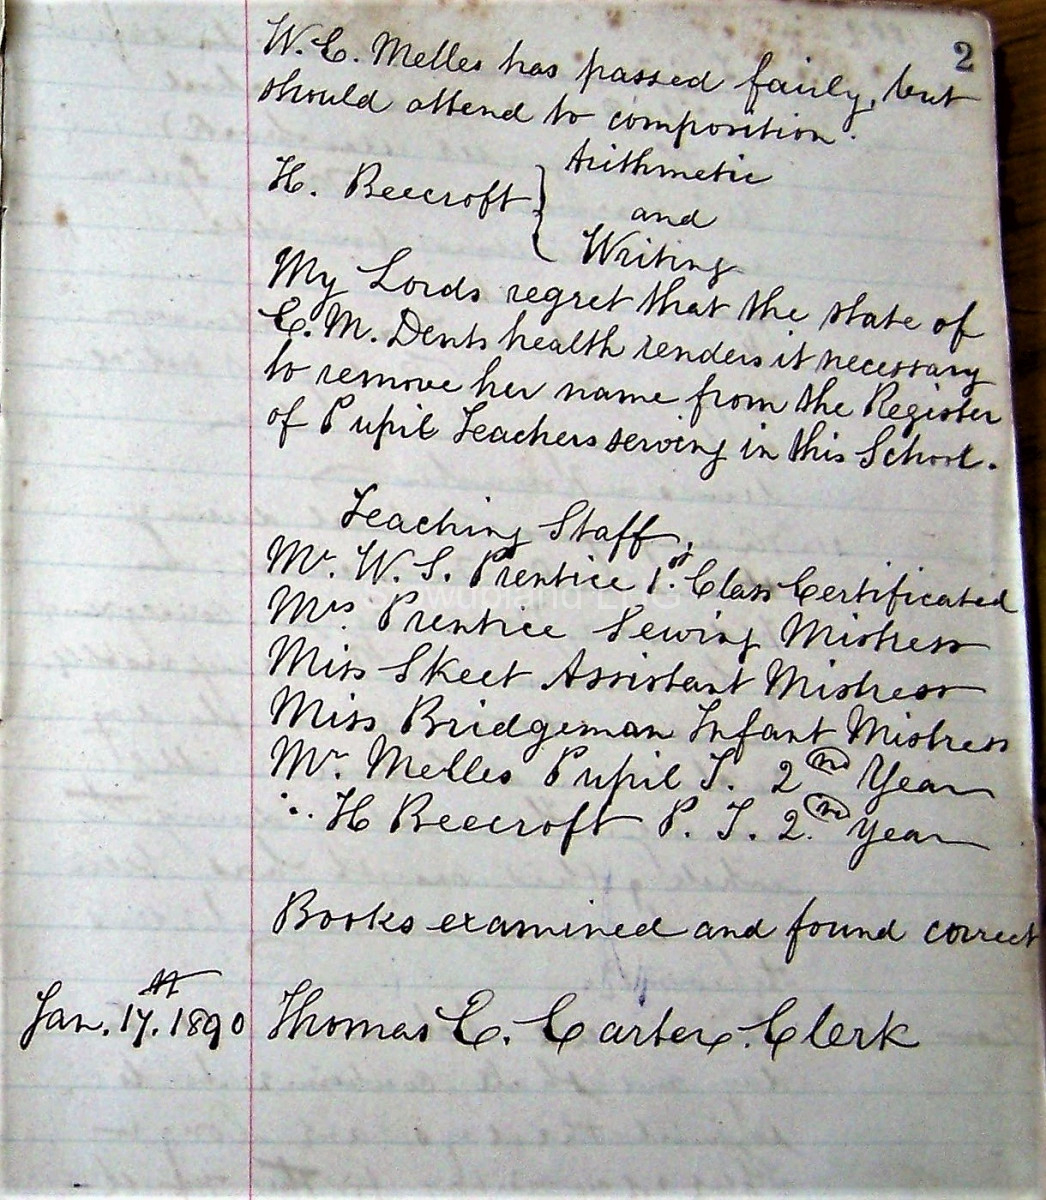 2
W. E. Melles has passed fairly, but
should attend to composition.
H. Beecroft } Arithmetic
and
Writing
My Lords regret that the state of
E. M. Dents health renders it necessary
to remove her name from the Register
of Pupil Teachers serving in this School.
Teaching Staff,
Mr. W. S. Prentice 1st Class Certificated
Mrs. Prentice Sewing Mistress
Miss Skeet Assistant Mistress
Miss Bridgeman Infant Mistress
Mr. Melles Pupil T. 2nd Year
∵ H Beecroft P. T. 2.nd Year
Books examined and found correct
Jan. 17th. 1890 Thomas E. Carter. Clerk